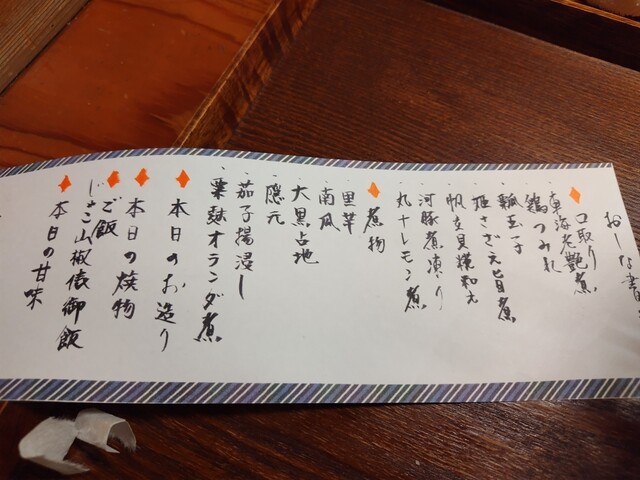 おしな書
口取り
車海老艶煮
鶏つみれ
瓢玉子
姫さざえ旨煮
帆立貝糀和え
河豚煮凍り
丸十レモン煮
煮物
里芋
南瓜
大黒占地
隠元
茄子揚浸し
粟麩オランダ煮
本日のお造り
本日の焼物
ご飯
じゃこ山椒俵御飯
本日の甘味